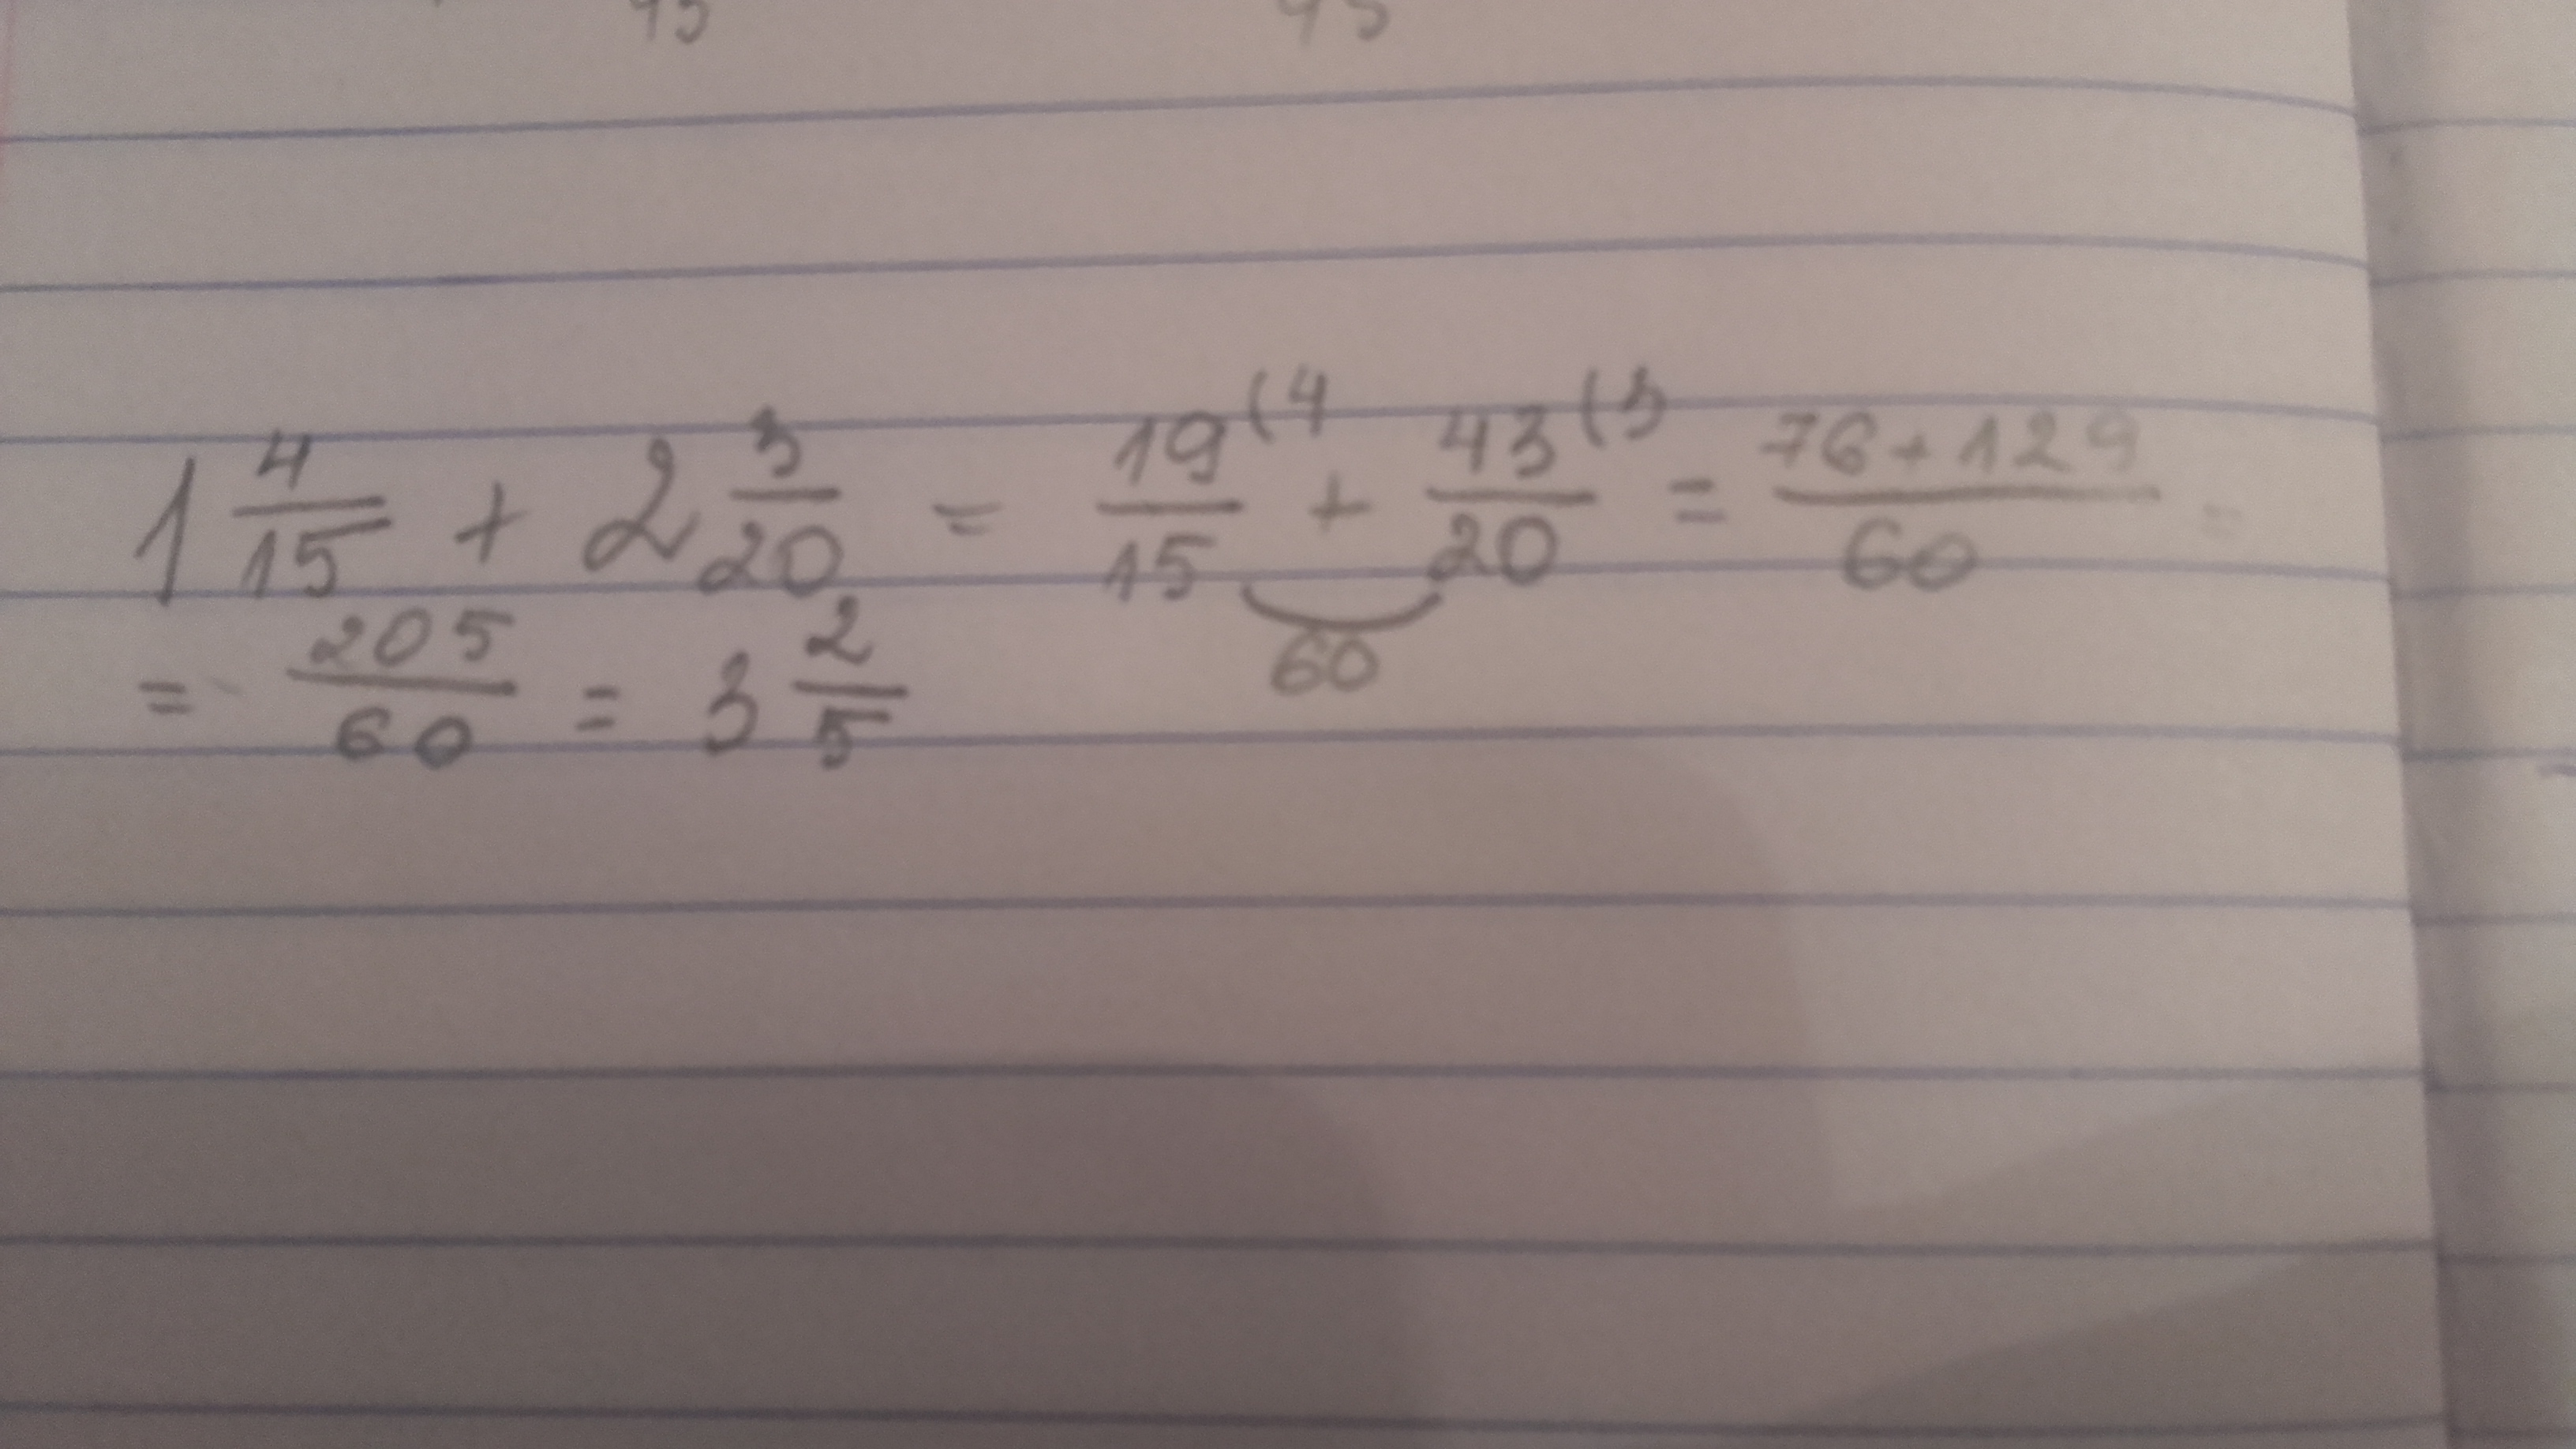 45 45
1 4/15 + 2 3/20 = 19/15 (4 + 43/20 (3 = 76+129/60 =
60
= 205/60 = 3 2/5